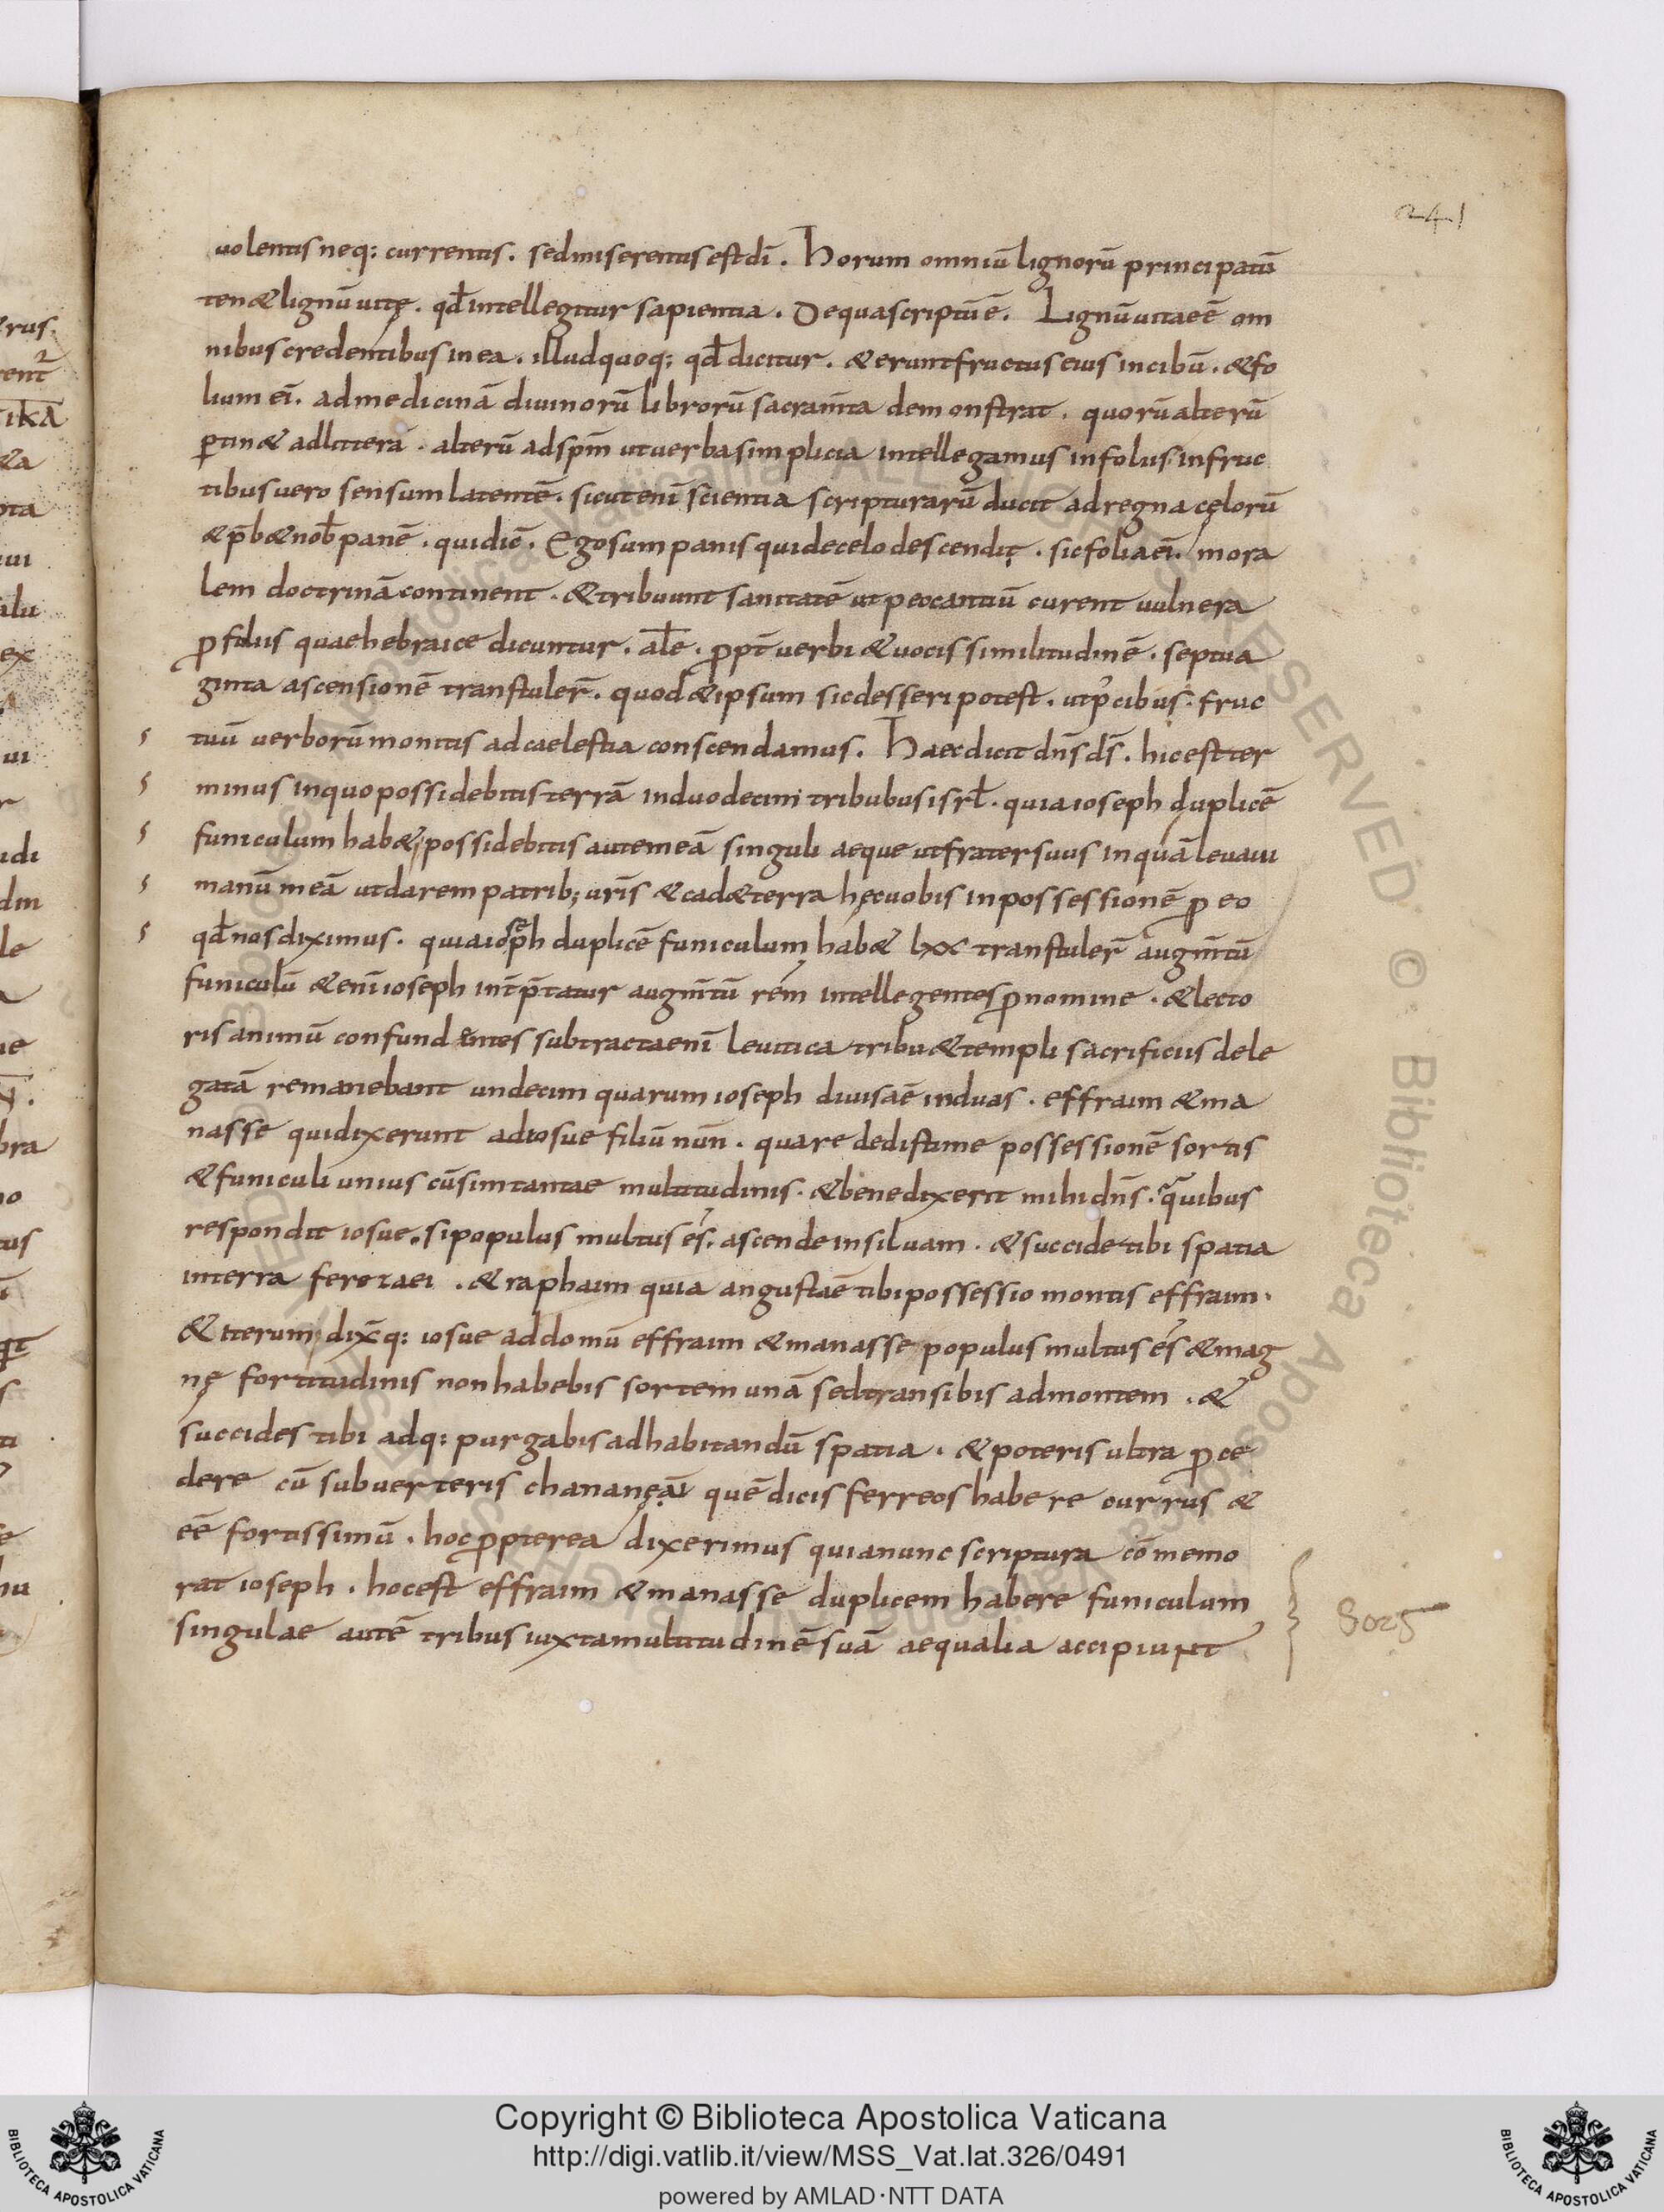 241
uolentis neq: currentis. sed miserentis est dī. Horum omniū lignorū principatū
ten& lignū uitę. qđ intellegitur sapientia. De qua scriptū ē. Lignū uitae ē om
nibus credentibus in ea. illud quoq: qđ dicitur. & erunt fructus eius in cibū. & fo
lium eī. ad medicinā diuinorū librorū sacram̄ta demonstrat. quorū alterū
ꝑtin& ad litterā. alterū ad spm̄ ut uerba simplicia intellegamus in foliis. in fruc
tibus uero sensum latentē. sicut enī scientia scripturarū ducit ad regna cęlorū
& p̄b& nob̄ panē. qui dic̄. Ego sum panis qui de celo descendit. sic folia eī. mora
lem doctrinā continent. & tribuunt sanitatē ut peccantiū curent uulnera
ꝓ foliis quae hebraice dicuntur. ale. ꝓpt̄ uerbi & uocis similitudinē. septua
ginta ascensionē transtuler̄. quod & ipsum sic desseri potest. ut p̄cibus. fruc
tuū uerborū montis ad caelestia conscendamus. Haec dicit dn̄s ds̄. hic est ter
minus in quo possidebitis terrā in duodecim tribubus isrł. quia ioseph duplicē
funiculum hab&, possidebitis autem eā singuli aeque ut frater suus in quā leuaui
manū meā ut darem patrib; uris̄ & cad& terra hęc uobis in possessionē ꝓ eo
qđ nos diximus. quia ioseph duplicē funiculum hab& lxx transtuler̄ augm̄tū
funiculū &enī ioseph int̄p̄tatur augm̄tū rem intellegentes ꝓ nomine. & lecto
ris animū confundentes subtracta enī leuitica tribu & templi sacrificiis dele
gatā remanebant undecim quarum ioseph diuisa ē in duas. effraim & ma
nasse qui dixerunt ad iosue filiū nun. quare dedisti me possessionē sortis
& funiculi unius cū sim tantae multitudinis. & benedixerit mihi dn̄s. quibus
respondit iosue. si populus multus es. ascende in siluam. & succide tibi spatia
in terra ferezaei. & raphaim quia angusta ē tibi possessio montis effraim.
& iterum, dix̄q: iosue ad domū effraim & manasse populus multus es & mag
nę fortitudinis non habebis sortem unā sed transibis ad montem. &
succides tibi adq: purgabis ad habitandū spatia. & poteris ultra ꝓce
dere cū subuerteris chananęāi quē dicis ferreos habere currus &
eē fortissimū. hoc ꝓpterea dixerimus quia nunc scriptura cōmemo
rat ioseph. hoc est effraim & manasse duplicem habere funiculum
singulae autē tribus iuxta multitudinē suā aequalia accipiunt
Sors
Copyright © Biblioteca Apostolica Vaticana
http://digi.vatlib.it/view/MSS_Vat.lat.326/0491
powered by AMLAD·NTT DATA